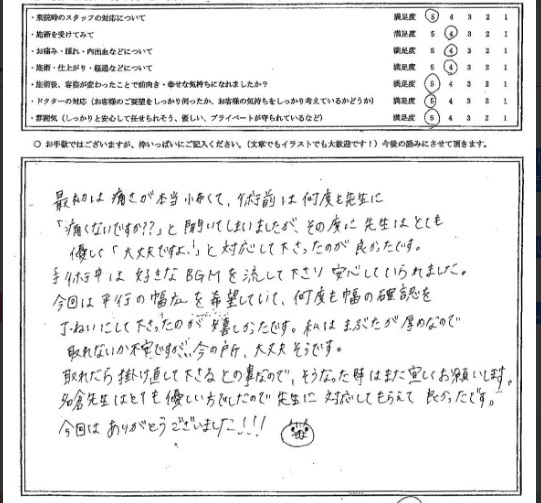 ・来院時のスタッフの対応について 満足度 5 4 3 2 1
・施術を受けてみて 満足度 5 4 3 2 1
・お痛み・腫れ・内出血などについて 満足度 5 4 3 2 1
・施術・仕上がり・経過などについて 満足度 5 4 3 2 1
・施術後、容姿が変わったことで前向き・幸せな気持ちになれましたか？ 満足度 5 4 3 2 1
・ドクターの対応（お客様のご要望をしっかり伺ったか、お客様の気持ちをしっかり考えているかどうか） 満足度 5 4 3 2 1
・雰囲気（しっかりと安心して任せられそう、優しい、プライベートが守られているなど） 満足度 5 4 3 2 1
○ お手数ではございますが、枠いっぱいにご記入ください。（文章でもイラストでも大歓迎です！）今後の励みにさせて頂きます。
最初は痛さが本当小布くて、術前は何度も先生に
「痛くないですか??」と聞いてしまいましたが、その度に先生はとても
優しく「大丈夫ですよ!」と対応して下さったのが良かったです。
手術中は好きなBGMを流して下さり安心していられました。
今回は平行の幅広を希望していて、何度も幅の確認を
ていねいにして下さったのが嬉しかったです。私はまぶたが厚めなので
取れないか不安ですが、今の所、大丈夫そうです。
取れたら掛け直して下さるとの事なので、そうなった時はまた宜しくお願いします。
名倉先生はとても優しい方でしたので先生に対応してもらえて良かったです。
今回はありがとうございました!!!